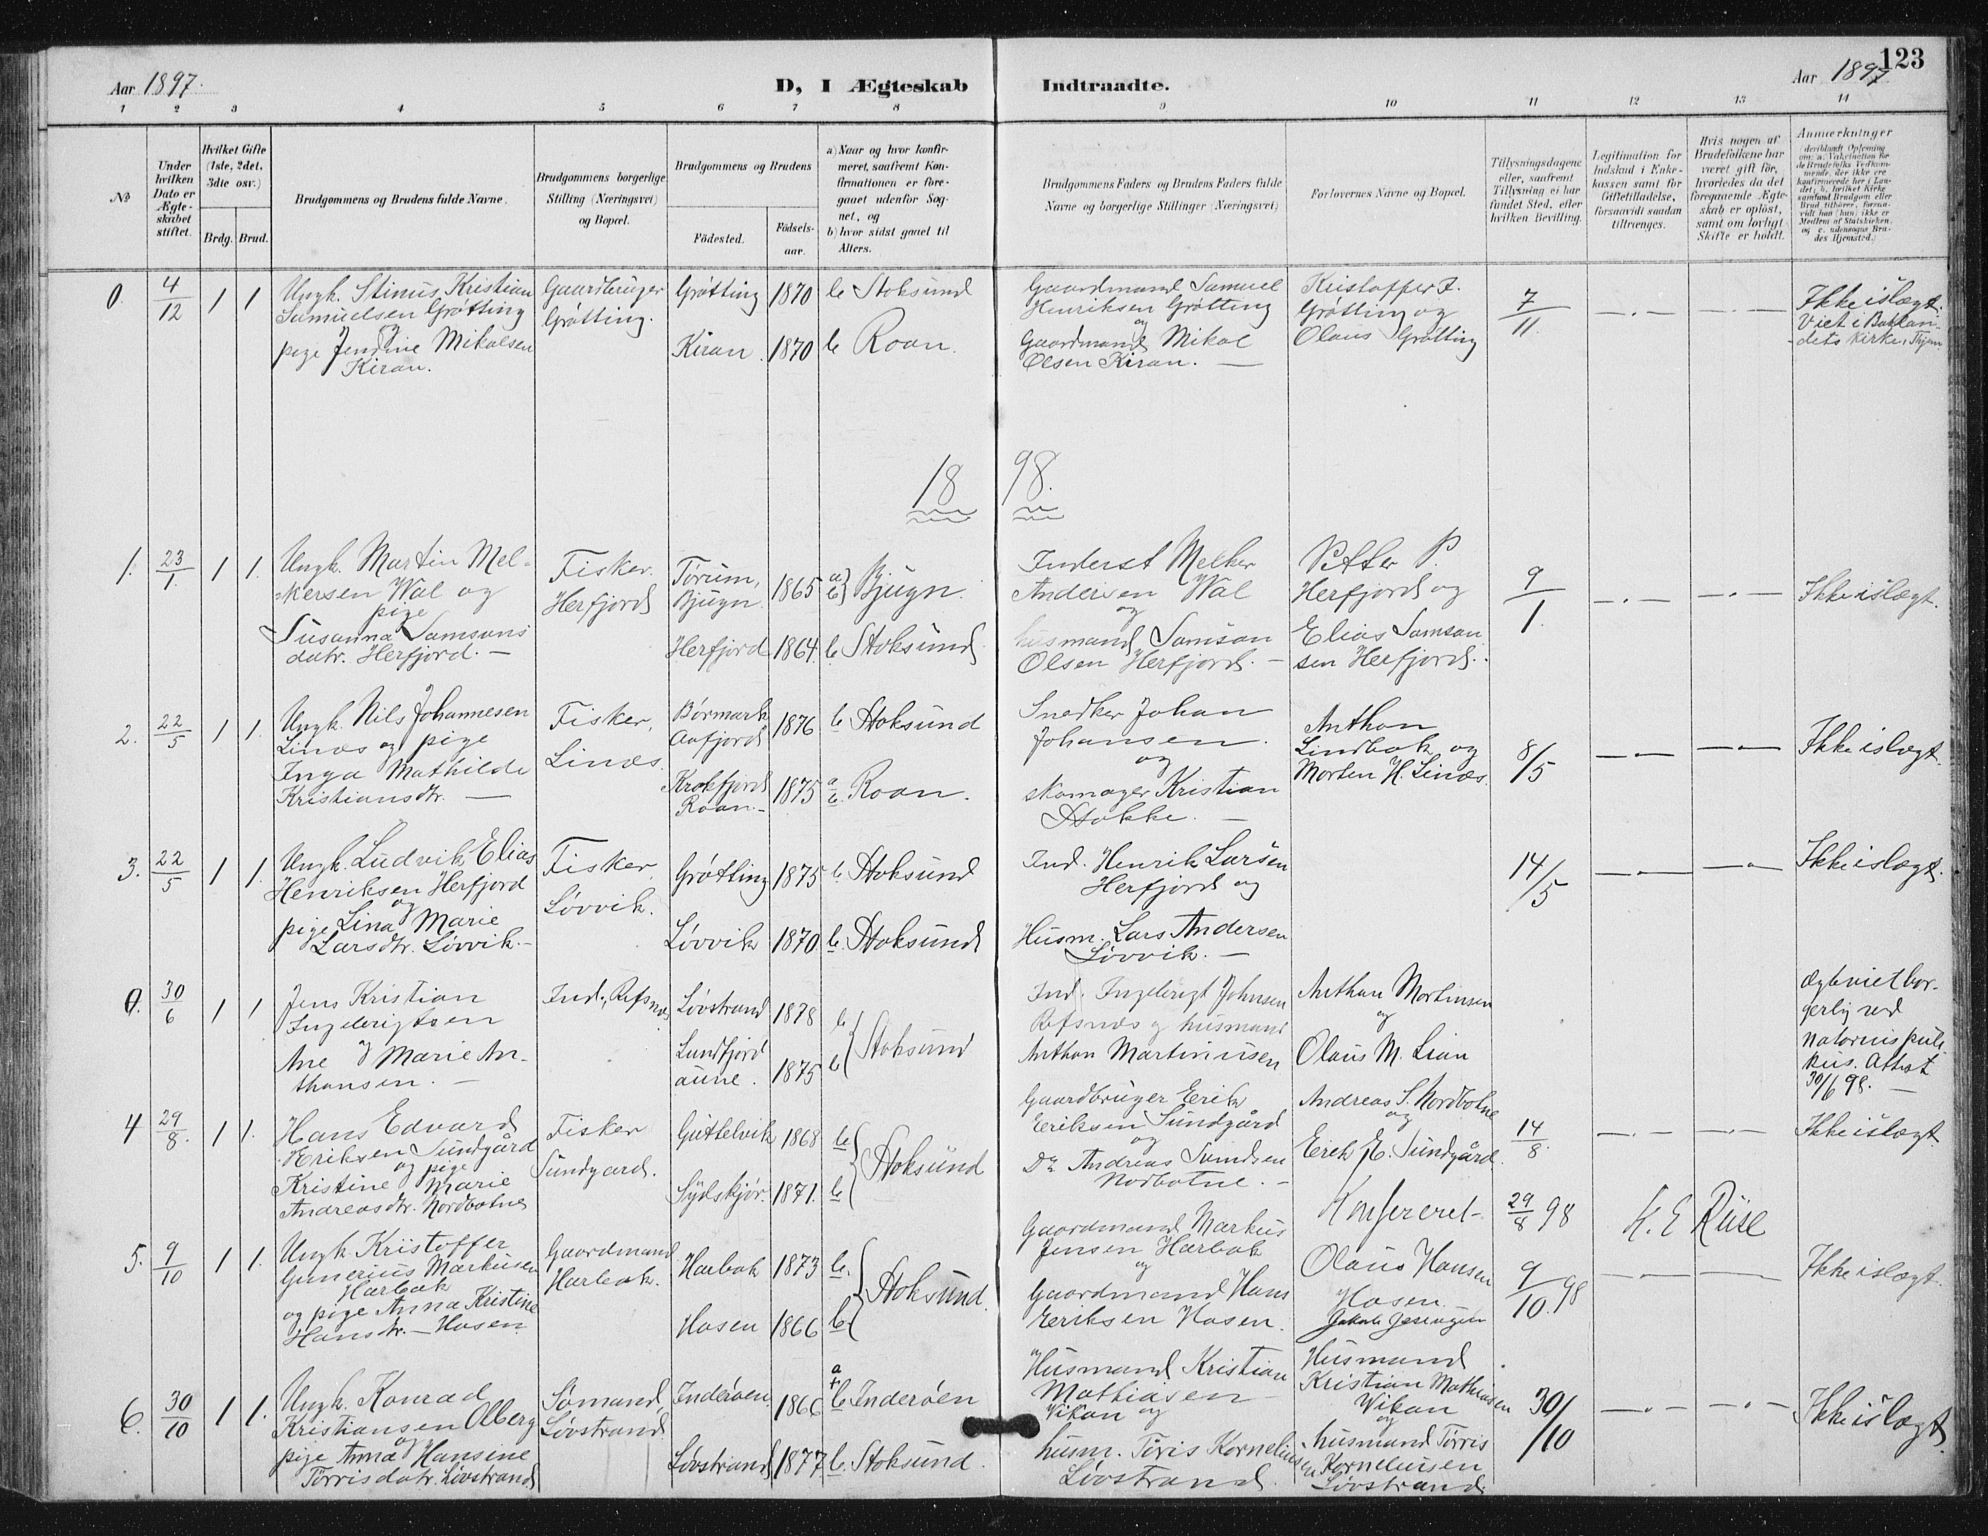 123
Aar 1897.
D, I Ægteskab Indtraadte.
Aar 1897
1 2 3 4 5 6 7 8 9 10 11 12 13 14
No
Under hvilken Dato er Ægteskabet stiftet.
Hvilket Gifte (1ste, 2det, 3die osv.)
Brdg. Brud.
Brudgommens og Brudens fulde Navne.
Brudgommens borgerlige Stilling (Næringsvei) og Bopæl.
Brudgommens og Brudens
Fødested.
Fødselsaar.
a) Naar og hvor konfirmeret, saafremt Konfirmationen er foregaaet udenfor Sognet, og
b) hvor sidst gaaet til Alters.
Brudgommens Faders og Brudens Faders fulde Navne og borgerlige Stillinger (Næringsvei)
Forlovernes Navne og Bopæl.
Tillysningsdagene eller, saafremt Tillysning ei har fundet Sted, efter hvilken Bevilling.
Legitimation for Indskud i Enkekassen samt for Giftetilladelse, forsaavidt saadan tiltrænges.
Hvis nogen af Brudefolkene har været gift før, hvorledes da det foregaaende Ægteskab er opløst, samt om lovligt Skifte er holdt.
Anmærkninger
0. 4/12 1 1
Ungk. Stinus Kristian
Samuelsen Grøtting
og
pige Jendine Mikalsen
Kiran.
Gaardbruger
Grøtting.
Grøtting 1870 b Stoksund
Kiran. 1870 b Roan.
Gaardmand Samuel
Henriksen Grøtting
og
Gaardmand Mikal
Olsen Kiran. —
Kristoffer J.
Grøtting og
Olaus Grøtting
7/11.
Ikke islægt.
Viet i Baklandets kirke, Thjem
1898.
1. 23/1. 1 1.
Ungk. Martin Melkersen Wal og
pige
Susanna Samsonsdatr. Herfjord. —
Fisker.
Herfjord
Tørum,
Bjugn. 1865 a) b) Bjugn.
Herfjord 1864. b Stoksund
Inderst Melker
Andersen Wal
og
husmand Samson
Olsen Herfjord. —
Petter P.
Herfjord og
Elias Samsonsen Herfjord.
9/1.
Ikke islægt.
2. 22/5 1 1.
Ungk. Nils Johannesen
Linæs og pige
Inga Mathilde
Kristiansdtr. —
Fisker,
Linæs
Børmark
Aafjord 1876 b Stoksund
Krokfjord
Roan. 1875 a b Roan.
Snedker Johan
Johansen.
og
skomager Kristian
Stokke. —
Anthon
Lindbak og
Morten H. Linæs.
8/5
Ikke islægt.
3. 22/5 1 1.
Ungk. Ludvik Elias
Henriksen Herfjord
og
pige Lina Marie
Larsdtr. Løvvik. —
Fisker.
Løvvik.
Grøtting 1875 b. Stoksund
Løvvik 1870 b. Stoksund
Ind. Henrik Larsen
Herfjord og
Husm. Lars Andersen
Løvvik. —
14/5
Ikke islægt.
0. 30/6 1 1
Jens Kristian
Ingebrigtsen
og
Ane Marie Anthonsen. —
Ind., Refsnæs
Løvstrand 1878 b
Lundfjordaune. 1875 b Stoksund
Ind. Ingebrigt Johnsen
Refsnæs og husmand
Anthon Martiniusen
Anthon Mortinsen
og
Olaus M. Lian
Ægteviet borgerlig ved
notorius publikus. Attest
30/6 98. —
4 29/8. 1 1.
Hans Edvard
Eriksen Sundgård
og pige
Kristine Marie
Andreasdtr. Nordbotne
Fisker
Sundgard.
Guttelvik 1868 b
Sydskjør. 1871. b Stoksund
Gaardbruger Erik
Eriksen Sundgård
og
Do Andreas Svendsen
Nordbotne. —
Andreas S. Nordbotne
og
Erik E. Sundgård.
14/8.
Ikke islægt
Konfereret 29/8 98 K. E Riise
5. 9/10 1 1.
Ungk. Kristoffer
Gunerius Markusen
Harbak
og pige Anna Kristine
Hansdtr. — Hosen.
Gaardmand
Harbak.
Harbak 1873 b.
Hosen 1866 b. Stoksund.
Gaardmand Markus
Jensen Harbak
og
Gaardmand Hans
Eriksen Hosen.
Olaus Hansen
Hosen
9/10. 98
Ikke islægt.
6. 30/10 1 1.
Ungk. Konrad
Kristiansen Olberg
og
pige Anna Hansine
Torrisdatr. Løvstrand
Sømand,
Løvstrand
Inderøen. 1866 a + b Inderøen
Løvstrand 1877 b. Stoksund.
Husmand Kristian
Mathiasen
Vikan og
husm. Toris Korneliusen
Løvstrand.
Husmand
Kristian Mathiasen
Vikan
og
husmand Torris
Korneliusen
Løvstrand
30/10
Ikke islægt.